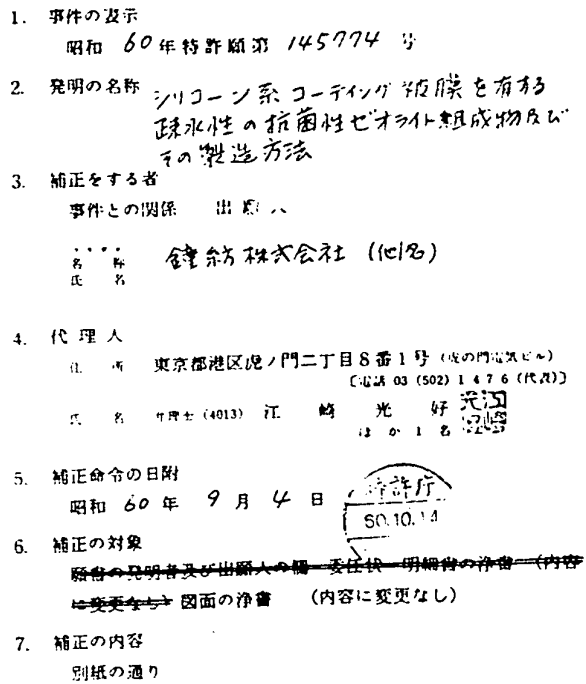 1. 事件の表示
昭和 60年特許願第 145774 号
2. 発明の名称 シリコーン系コーティング被膜を有する
疎水性の抗菌性ゼオライト組成物及び
その製造方法
3. 補正をする者
事件との関係 出願人
名称
氏名
鐘紡株式会社 (他1名)
4. 代理人
住所 東京都港区虎ノ門二丁目8番1号 (虎の門電気ビル)
〔電話 03 (502) 1476 (代表)〕
氏名 弁理士 (4013) 江崎光好
ほか1名
5. 補正命令の日附
昭和 60年 9月 4日
特許庁
60.10.14
6. 補正の対象
願書の発明者及び出願人の欄 委任状 明細書の浄書 (内容
に変更なし) 図面の浄書 (内容に変更なし)
7. 補正の内容
別紙の通り